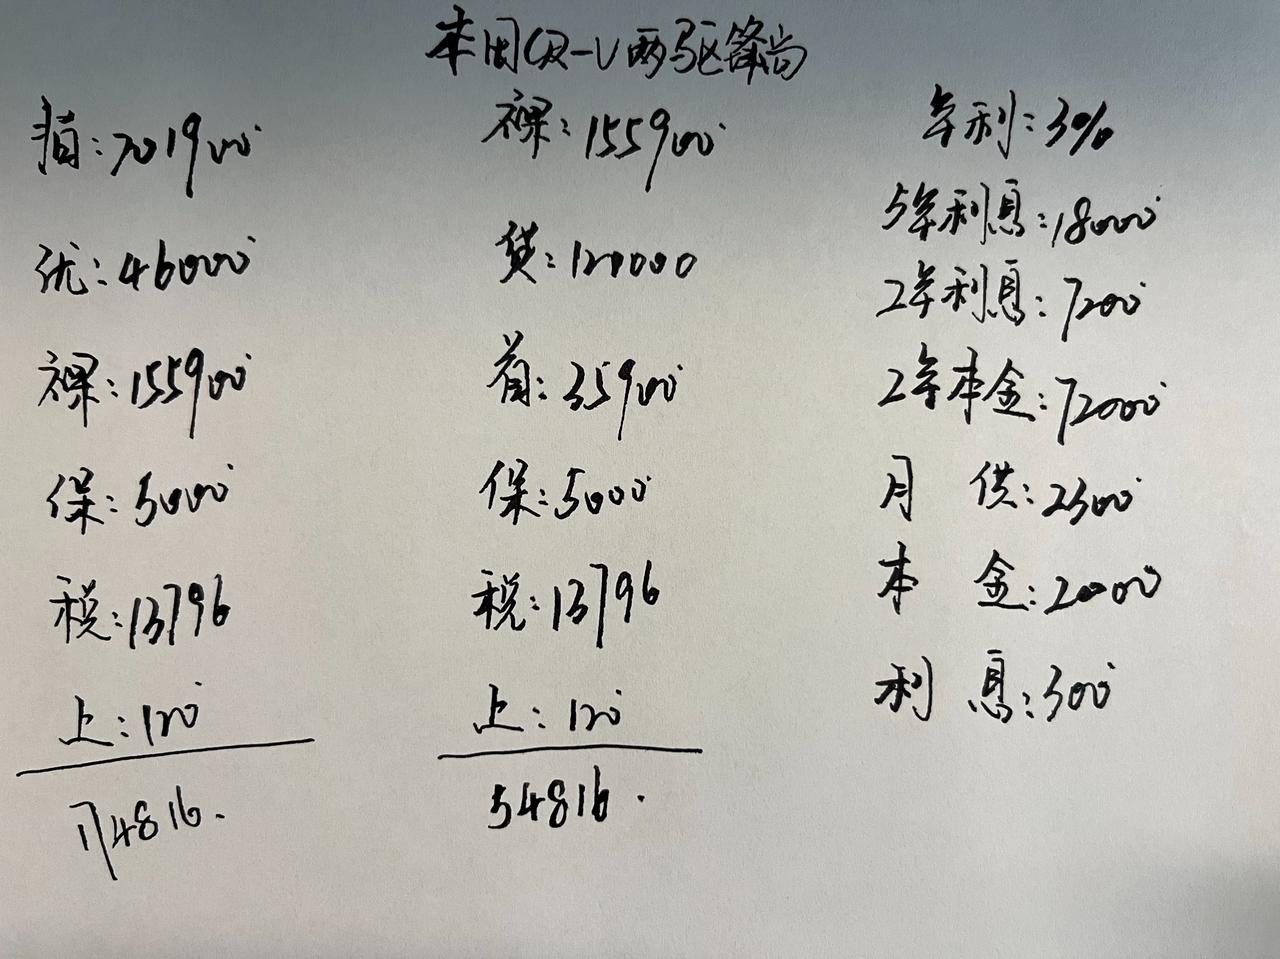 本田CR-V两驱锋尚
指:201900
优:46000
裸:155900
保:5000
税:13796
上:120
174816.
裸:155900
贷:120000
首:35900
保:5000
税:13796
上:120
54816.
年利:3%
5年利息:18000
2年利息:7200
2年本金:72000
月供:2300
本金:2000
利息:300